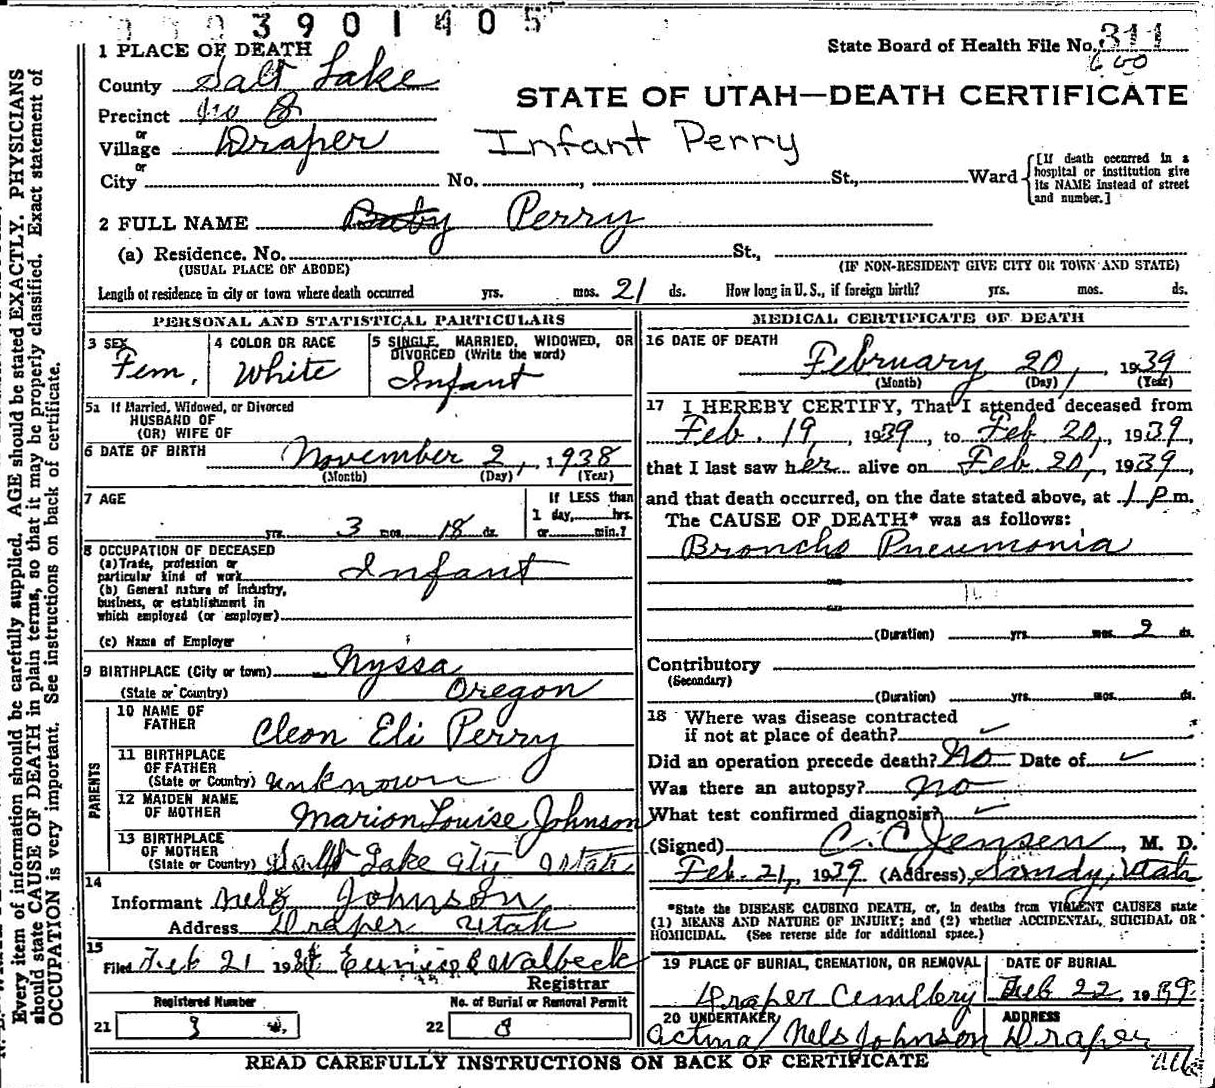 3901405
State Board of Health File No. 311
600
STATE OF UTAH—DEATH CERTIFICATE
1 PLACE OF DEATH
County Salt Lake
Precinct No 8
or
Village Draper
Infant Perry
or
City No. , St., Ward
[If death occurred in a
hospital or institution give
its NAME instead of street
and number.]
2 FULL NAME Baby Perry
(a) Residence. No. St.,
(USUAL PLACE OF ABODE) (IF NON-RESIDENT GIVE CITY OR TOWN AND STATE)
Length of residence in city or town where death occurred yrs. mos. 21 ds. How long in U. S., if foreign birth? yrs. mos. ds.
PERSONAL AND STATISTICAL PARTICULARS
3 SEX Fem.
4 COLOR OR RACE White
5 SINGLE, MARRIED, WIDOWED, OR
DIVORCED (Write the word)
Infant
5a If Married, Widowed, or Divorced
HUSBAND OF
(OR) WIFE OF
6 DATE OF BIRTH November 2, 1938
(Month) (Day) (Year)
7 AGE
yrs. 3 mos. 18 ds.
If LESS than
1 day, hrs.
or min.?
8 OCCUPATION OF DECEASED
(a) Trade, profession or
particular kind of work Infant
(b) General nature of Industry,
business, or establishment in
which employed (or employer)
(c) Name of Employer
9 BIRTHPLACE (City or town) Nyssa
(State or Country) Oregon
PARENTS
10 NAME OF
FATHER Cleon Eli Perry
11 BIRTHPLACE
OF FATHER
(State or Country) unknown
12 MAIDEN NAME
OF MOTHER Marion Louise Johnson
13 BIRTHPLACE
OF MOTHER
(State or Country) Salt Lake City Utah
14
Informant Nels Johnson
Address Draper Utah
15
Filed Feb 21 19 Eunice B Walbeck
Registrar
Registered Number No. of Burial or Removal Permit
21 3 22 8
MEDICAL CERTIFICATE OF DEATH
16 DATE OF DEATH
February 20, 1939
(Month) (Day) (Year)
17 I HEREBY CERTIFY, That I attended deceased from
Feb. 19, 1939, to Feb 20, 1939,
that I last saw her alive on Feb 20, 1939,
and that death occurred, on the date stated above, at 1 P m.
The CAUSE OF DEATH* was as follows:
Broncho Pneumonia
(Duration) yrs. mos. 2 ds.
Contributory
(Secondary)
(Duration) yrs. mos. ds.
18 Where was disease contracted
if not at place of death?
Did an operation precede death? No Date of
Was there an autopsy? No
What test confirmed diagnosis?
(Signed) C. C. Jensen, M. D.
Feb. 21, 1939 (Address) Sandy, Utah
*State the DISEASE CAUSING DEATH, or, in deaths from VIOLENT CAUSES state
(1) MEANS AND NATURE OF INJURY; and (2) whether ACCIDENTAL, SUICIDAL OR
HOMICIDAL. (See reverse side for additional space.)
19 PLACE OF BURIAL, CREMATION, OR REMOVAL DATE OF BURIAL
Draper Cemetery Feb 22 1939
20 UNDERTAKER ADDRESS
acting Nels Johnson Draper
READ CAREFULLY INSTRUCTIONS ON BACK OF CERTIFICATE
Every item of information should be carefully supplied. AGE should be stated EXACTLY. PHYSICIANS
should state CAUSE OF DEATH in plain terms, so that it may be properly classified. Exact statement of
OCCUPATION is very important. See instructions on back of certificate.